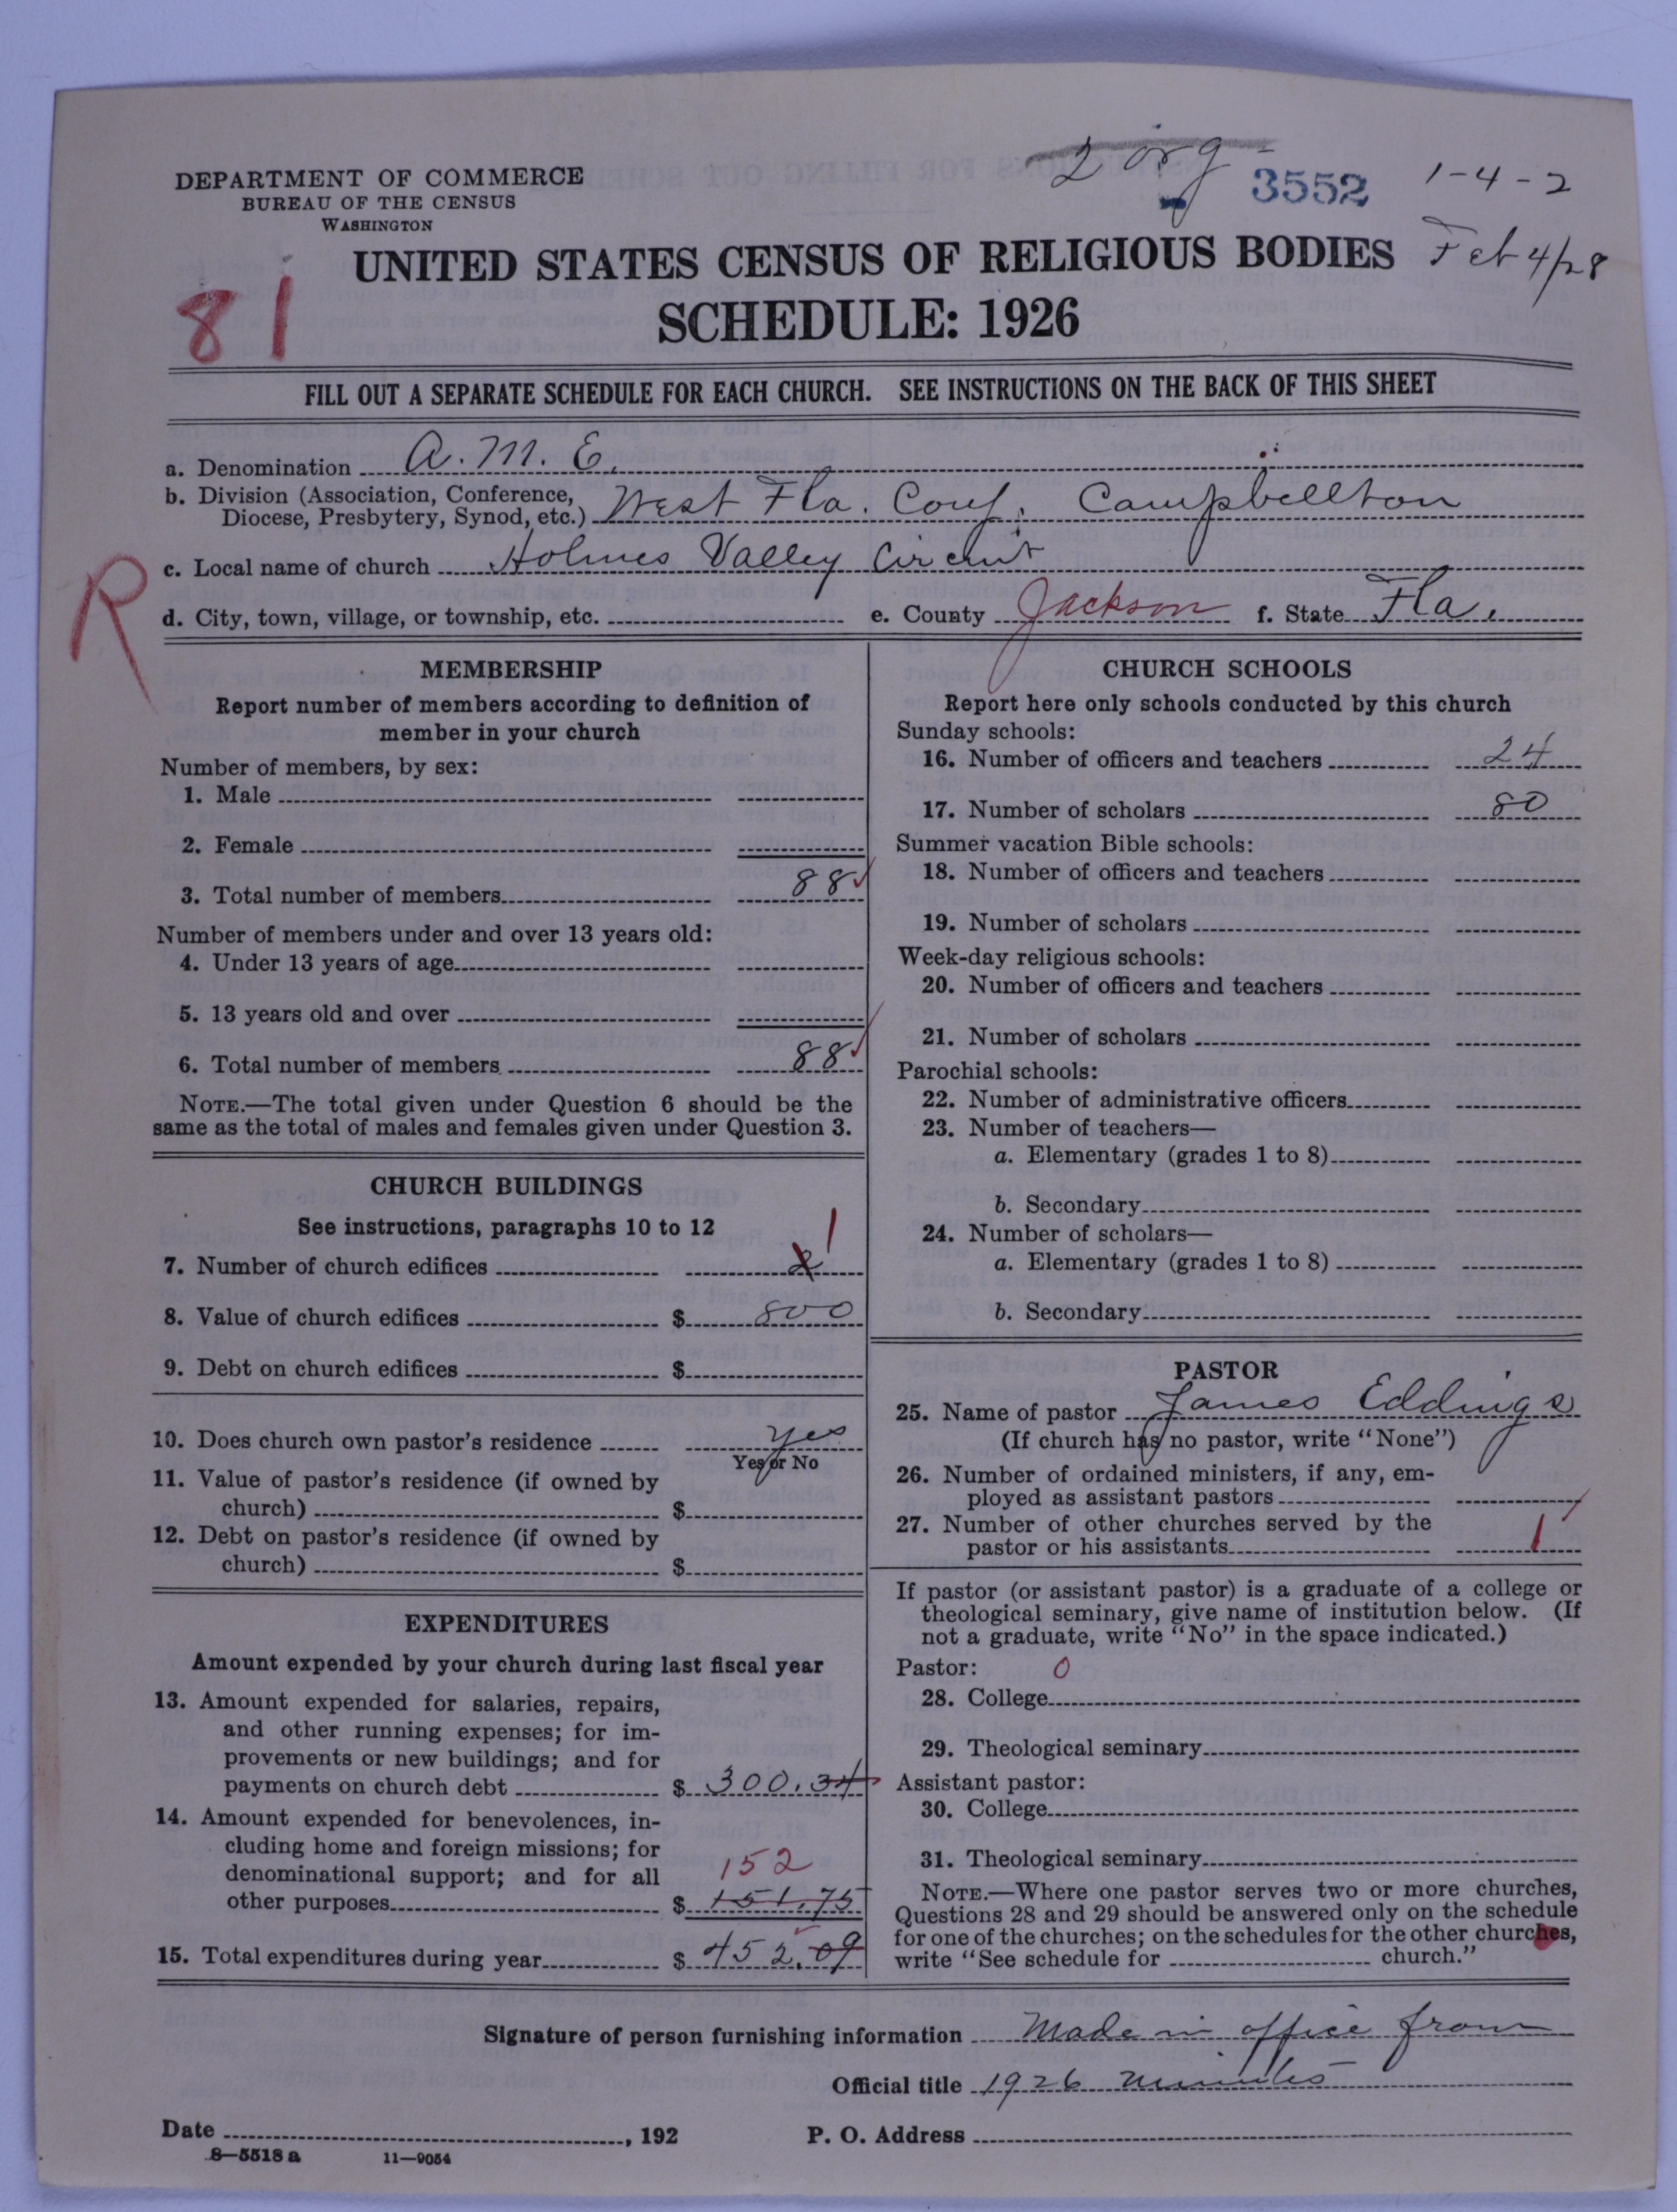 2 org
3552
1-4-2
DEPARTMENT OF COMMERCE
BUREAU OF THE CENSUS
WASHINGTON
UNITED STATES CENSUS OF RELIGIOUS BODIES
Feb 4/28
81
SCHEDULE: 1926
FILL OUT A SEPARATE SCHEDULE FOR EACH CHURCH. SEE INSTRUCTIONS ON THE BACK OF THIS SHEET
a. Denomination A. M. E.
b. Division (Association, Conference,
Diocese, Presbytery, Synod, etc.) West Fla. Conf. Campbellton
R
c. Local name of church Holmes Valley Circuit
d. City, town, village, or township, etc. e. County Jackson f. State Fla.
MEMBERSHIP
Report number of members according to definition of
member in your church
Number of members, by sex:
1. Male
2. Female
3. Total number of members 88
Number of members under and over 13 years old:
4. Under 13 years of age
5. 13 years old and over
6. Total number of members 88
NOTE.—The total given under Question 6 should be the
same as the total of males and females given under Question 3.
CHURCH BUILDINGS
See instructions, paragraphs 10 to 12
7. Number of church edifices 2 1
8. Value of church edifices $ 800
9. Debt on church edifices $
10. Does church own pastor's residence yes
Yes or No
11. Value of pastor's residence (if owned by
church) $
12. Debt on pastor's residence (if owned by
church) $
EXPENDITURES
Amount expended by your church during last fiscal year
13. Amount expended for salaries, repairs,
and other running expenses; for im-
provements or new buildings; and for
payments on church debt $ 300.34
14. Amount expended for benevolences, in-
cluding home and foreign missions; for
denominational support; and for all
152
other purposes $ 151.75
15. Total expenditures during year $ 452.09
CHURCH SCHOOLS
Report here only schools conducted by this church
Sunday schools:
16. Number of officers and teachers 24
17. Number of scholars 80
Summer vacation Bible schools:
18. Number of officers and teachers
19. Number of scholars
Week-day religious schools:
20. Number of officers and teachers
21. Number of scholars
Parochial schools:
22. Number of administrative officers
23. Number of teachers—
a. Elementary (grades 1 to 8)
b. Secondary
24. Number of scholars—
a. Elementary (grades 1 to 8)
b. Secondary
PASTOR
25. Name of pastor James Eddings
(If church has no pastor, write "None")
26. Number of ordained ministers, if any, em-
ployed as assistant pastors
27. Number of other churches served by the
pastor or his assistants 1
If pastor (or assistant pastor) is a graduate of a college or
theological seminary, give name of institution below. (If
not a graduate, write "No" in the space indicated.)
Pastor: 0
28. College
29. Theological seminary
Assistant pastor:
30. College
31. Theological seminary
NOTE.—Where one pastor serves two or more churches,
Questions 28 and 29 should be answered only on the schedule
for one of the churches; on the schedules for the other churches,
write "See schedule for church."
Signature of person furnishing information Made in office from
Official title 1926 minutes
Date , 192 P. O. Address
8—5518 a 11—9054